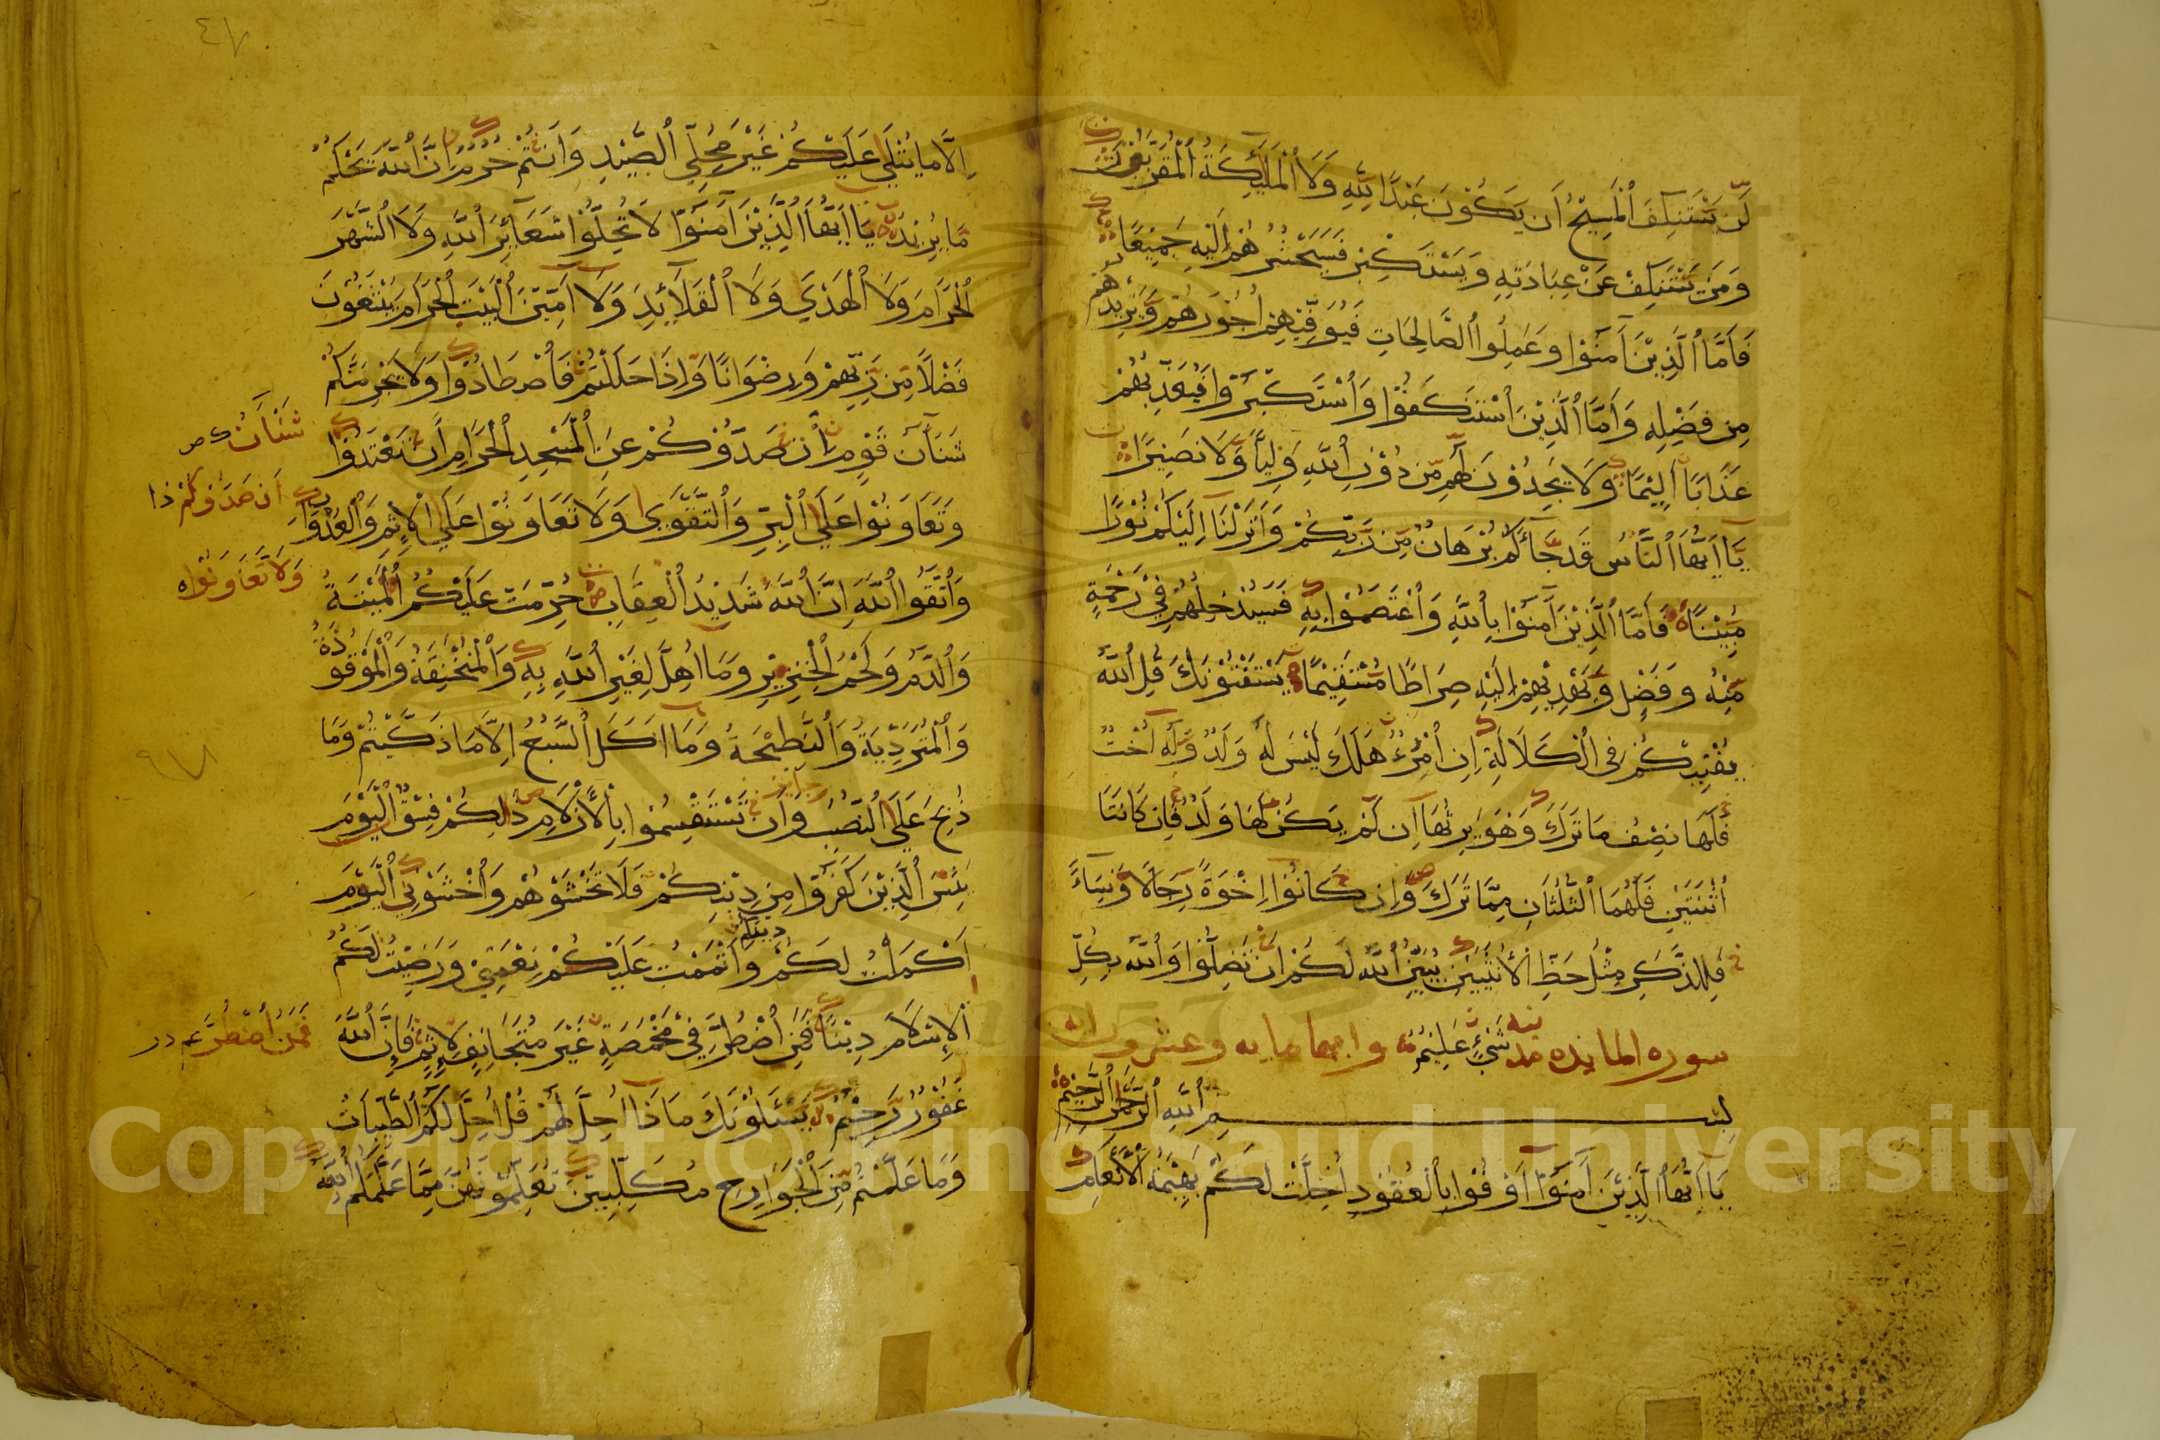 لَن يَسْتَنكِفَ ٱلْمَسِيحُ أَن يَكُونَ عَبْدًا لِلَّهِ وَلَا ٱلْمَلَٰئِكَةُ ٱلْمُقَرَّبُونَ
وَمَن يَسْتَنكِفْ عَنْ عِبَادَتِهِ وَيَسْتَكْبِرْ فَسَيَحْشُرُهُمْ إِلَيْهِ جَمِيعًا
فَأَمَّا ٱلَّذِينَ آمَنُوا وَعَمِلُوا ٱلصَّالِحَاتِ فَيُوَفِّيهِمْ أُجُورَهُمْ وَيَزِيدُهُم
مِن فَضْلِهِ وَأَمَّا ٱلَّذِينَ ٱسْتَنكَفُوا وَٱسْتَكْبَرُوا فَيُعَذِّبُهُمْ
عَذَابًا أَلِيمًا وَلَا يَجِدُونَ لَهُم مِّن دُونِ ٱللَّهِ وَلِيًّا وَلَا نَصِيرًا
يَا أَيُّهَا ٱلنَّاسُ قَدْ جَاءَكُم بُرْهَانٌ مِّن رَّبِّكُمْ وَأَنزَلْنَا إِلَيْكُمْ نُورًا
مُّبِينًا فَأَمَّا ٱلَّذِينَ آمَنُوا بِٱللَّهِ وَٱعْتَصَمُوا بِهِ فَسَيُدْخِلُهُمْ فِي رَحْمَةٍ
مِّنْهُ وَفَضْلٍ وَيَهْدِيهِمْ إِلَيْهِ صِرَاطًا مُّسْتَقِيمًا يَسْتَفْتُونَكَ قُلِ ٱللَّهُ
يُفْتِيكُمْ فِي ٱلْكَلَالَةِ إِنِ ٱمْرُؤٌ هَلَكَ لَيْسَ لَهُ وَلَدٌ وَلَهُ أُخْتٌ
فَلَهَا نِصْفُ مَا تَرَكَ وَهُوَ يَرِثُهَا إِن لَّمْ يَكُن لَّهَا وَلَدٌ فَإِن كَانَتَا
ٱثْنَتَيْنِ فَلَهُمَا ٱلثُّلُثَانِ مِمَّا تَرَكَ وَإِن كَانُوا إِخْوَةً رِجَالًا وَنِسَاءً
فَلِلذَّكَرِ مِثْلُ حَظِّ ٱلْأُنثَيَيْنِ يُبَيِّنُ ٱللَّهُ لَكُمْ أَن تَضِلُّوا وَٱللَّهُ بِكُلِّ
شَيْءٍ عَلِيمٌ سوره المايده مدنيه وايها مايه وعشرون
بِسْمِ ٱللَّهِ ٱلرَّحْمَٰنِ ٱلرَّحِيمِ
يَا أَيُّهَا ٱلَّذِينَ آمَنُوا أَوْفُوا بِٱلْعُقُودِ أُحِلَّتْ لَكُم بَهِيمَةُ ٱلْأَنْعَامِ
٤٧
إِلَّا مَا يُتْلَى عَلَيْكُمْ غَيْرَ مُحِلِّي ٱلصَّيْدِ وَأَنتُمْ حُرُمٌ إِنَّ ٱللَّهَ يَحْكُمُ
مَا يُرِيدُ يَا أَيُّهَا ٱلَّذِينَ آمَنُوا لَا تُحِلُّوا شَعَائِرَ ٱللَّهِ وَلَا ٱلشَّهْرَ
ٱلْحَرَامَ وَلَا ٱلْهَدْيَ وَلَا ٱلْقَلَائِدَ وَلَا آمِّينَ ٱلْبَيْتَ ٱلْحَرَامَ يَبْتَغُونَ
فَضْلًا مِّن رَّبِّهِمْ وَرِضْوَانًا وَإِذَا حَلَلْتُمْ فَٱصْطَادُوا وَلَا يَجْرِمَنَّكُمْ
شَنَآنُ قَوْمٍ أَن صَدُّوكُمْ عَنِ ٱلْمَسْجِدِ ٱلْحَرَامِ أَن تَعْتَدُوا
شَنْآنُ ك ص
وَتَعَاوَنُوا عَلَى ٱلْبِرِّ وَٱلتَّقْوَى وَلَا تَعَاوَنُوا عَلَى ٱلْإِثْمِ وَٱلْعُدْوَانِ
أَن صَدُّوكُمْ
وَٱتَّقُوا ٱللَّهَ إِنَّ ٱللَّهَ شَدِيدُ ٱلْعِقَابِ حُرِّمَتْ عَلَيْكُمُ ٱلْمَيْتَةُ
وَلَا تَعَاوَنُوا ه
وَٱلدَّمُ وَلَحْمُ ٱلْخِنزِيرِ وَمَا أُهِلَّ لِغَيْرِ ٱللَّهِ بِهِ وَٱلْمُنْخَنِقَةُ وَٱلْمَوْقُوذَةُ
وَٱلْمُتَرَدِّيَةُ وَٱلنَّطِيحَةُ وَمَا أَكَلَ ٱلسَّبُعُ إِلَّا مَا ذَكَّيْتُمْ وَمَا
ذُبِحَ عَلَى ٱلنُّصُبِ وَأَن تَسْتَقْسِمُوا بِٱلْأَزْلَامِ ذَٰلِكُمْ فِسْقٌ ٱلْيَوْمَ
يَئِسَ ٱلَّذِينَ كَفَرُوا مِن دِينِكُمْ فَلَا تَخْشَوْهُمْ وَٱخْشَوْنِي ٱلْيَوْمَ
أَكْمَلْتُ لَكُمْ دِينَكُمْ وَأَتْمَمْتُ عَلَيْكُمْ نِعْمَتِي وَرَضِيتُ لَكُمُ
ٱلْإِسْلَامَ دِينًا فَمَنِ ٱضْطُرَّ فِي مَخْمَصَةٍ غَيْرَ مُتَجَانِفٍ لِّإِثْمٍ فَإِنَّ ٱللَّهَ
فَمَنُ ٱضْطُرَّ
غَفُورٌ رَّحِيمٌ يَسْئَلُونَكَ مَاذَا أُحِلَّ لَهُمْ قُلْ أُحِلَّ لَكُمُ ٱلطَّيِّبَاتُ
وَمَا عَلَّمْتُم مِّنَ ٱلْجَوَارِحِ مُكَلِّبِينَ تُعَلِّمُونَهُنَّ مِمَّا عَلَّمَكُمُ ٱللَّهُ
Copyright © King Saud University